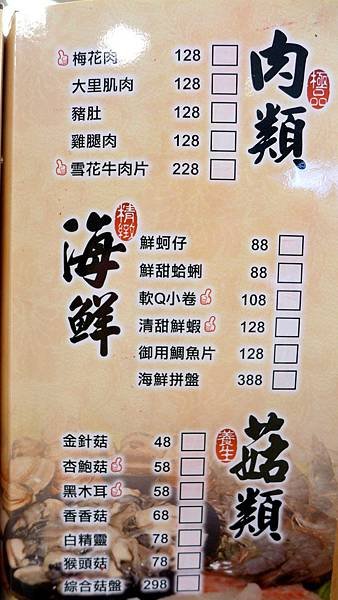 極品
肉類
梅花肉 128
大里肌肉 128
豬肚 128
雞腿肉 128
雪花牛肉片 228
精緻
海鮮
鮮蚵仔 88
鮮甜蛤蜊 88
軟Q小卷 108
清甜鮮蝦 128
御用鯛魚片 128
海鮮拼盤 388
養生
菇類
金針菇 48
杏鮑菇 58
黑木耳 58
香香菇 68
白精靈 78
猴頭菇 78
綜合菇盤 298